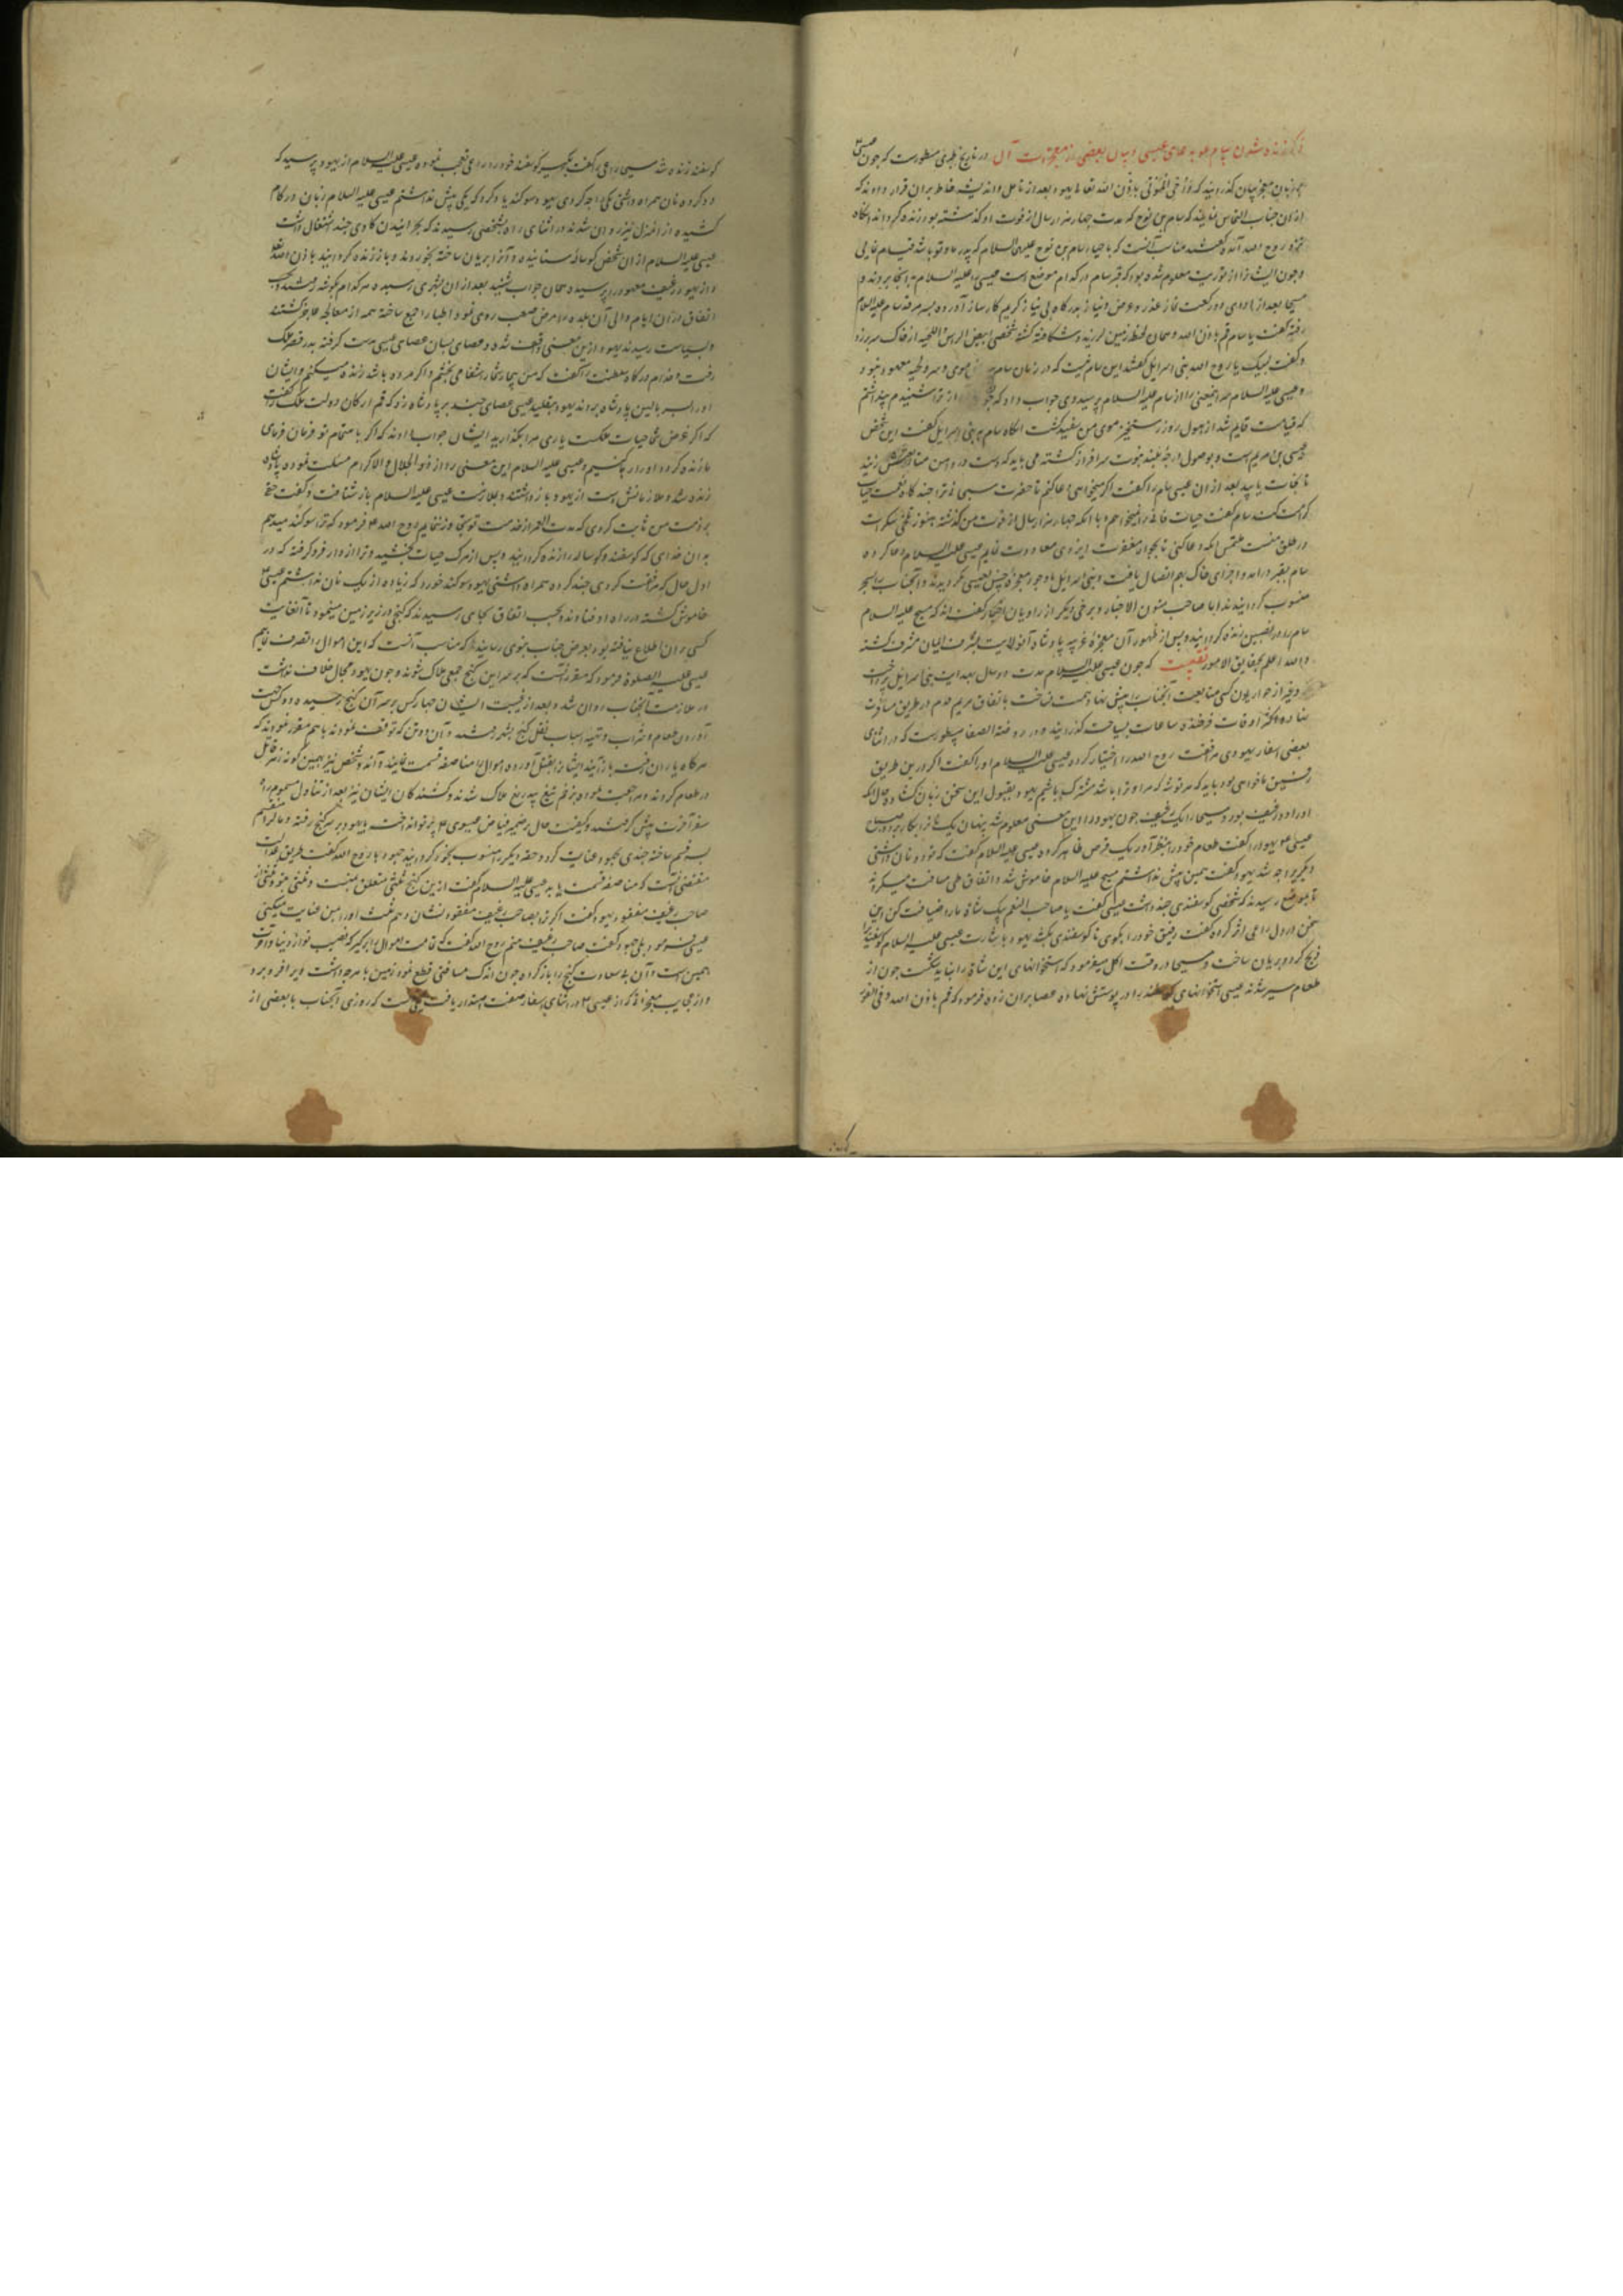 ذکر زنده شدن سام بدعای عیسی و بیان بعضی از معجزات آن در تاریخ طبری مسطورست که چون عیسی
بزبان معجز بیان گذرانید که وَأُحیِ المَوتی باذن الله تعالی یهود بعد از تامل و اندیشه خاطر بران قرار دادند که
از ان جناب التماس نمایند که سام بن نوح که مدت چهار هزار سال از فوت او گذشته بود زنده گرداند انگاه
نزد روح الله آمده گفتند مناسب آنست که باحیاء سام بن نوح علیه السلام که پدر ما و تو باشد قیام نمایی
و چون ایشانرا از توریت معلوم شده بود که قبر سام در کدام موضع است عیسی را علیه السلام بدانجا بردند و
مسیحا بعد از ادای دو رکعت نماز و عرض نیاز بدرگاه بی نیاز کریم کارساز آورده بسر مرقد سام علیه السلام
رفته گفت یا سام قم باذن الله و همان لحظه زمین لرزید و شکافته گشته شخصی ابیض الراس و اللحیه از خاک سر برزد
و گفت لبیک یا روح الله بنی اسرائیل گفتند این سام نیست که در زمان سام موی سر و لحیه معهود نبود
و عیسی علیه السلام این معنی را از سام علیه السلام پرسید وی جواب داد که چون آواز ترا شنیدم پنداشتم
که قیامت قایم شد از هول روز رستخیز موی من سفید گشت انگاه سام به بنی اسرائیل گفت این شخص
عیسی بن مریم است و بوصول درجه بلند نبوت سرافراز گشته می باید که دست در دامن متابعتش زنید
تا نجات یابید بعد از ان عیسی سام را گفت اگر میخواهی دعا کنم تا حضرت سبحانی ترا چند گاه نعمت حیات
کرامت کند سام گفت حیات فانی را نمیخواهم و با انکه چهار هزار سال از فوت من گذشته هنوز تلخی سکرات
در حلق منست ملتمس انکه دعا کنی تا بجوار مغفرت ایزدی معاودت نمایم عیسی علیه السلام دعا کرده
سام بقبر درامد و اجزای خاک بهم اتصال یافت و بنی اسرائیل با وجود معجزه چنین بعیسی نگرویدند و آنجناب را بسحر
منسوب گردانیدند اما صاحب متون الاخبار و برخی دیگر از راویان اخبار گفته اند که مسیح علیه السلام
سام را در نصیبین زنده گردانیده و پس از ظهور آن معجزه غریبه پادشاه آنولایت بشرف ایمان مشرف گشته
والله اعلم بحقایق الامور که چون عیسی علیه السلام مدت دو سال بهدایت بنی اسرائیل پرداخت
و غیر از حواریون کسی متابعت آنجناب را پیش نهاد همت نساخت باتفاق مریم قدم در طریق مسافرت
نهاده اکثر اوقات فرخنده ساعات بسیاحت گذرانید و در روضة الصفا مسطورست که در اثنای
بعضی اسفار یهودی مرافقت روح الله را اختیار کرده عیسی علیه السلام او را گفت اگر درین طریق
رفیق ما خواهی بود باید که هر توشه که مرا و ترا باشد مشترک باشیم یهود بقبول این سخن زبان گشاد و حال انکه
او را دو رغیف بود و مسیحا را یک رغیف چون یهود را این معنی معلوم شد پنهان یک نانرا بکار برد و صباح
عیسی علیه یهود را گفت طعام خود را بنظر آور یک قرص ظاهر کرده عیسی علیه السلام گفت که تو دو نان داشتی
دیگر چه شد یهود گفت همین پیش نداشتم مسیح علیه السلام خاموش شد و اتفاق طی مسافت میکردند
تا بموضعی رسیدند که شخصی گوسفندی چند داشت عیسی گفت یا صاحب الغنم بیک شاة ما را ضیافت کن این
سخن در دل راعی اثر کرده گفت رفیق خود را بگوی تا گوسفندی بکشد یهود باشارت عیسی علیه السلام گوسفند را
ذبح کرد و بریان ساخت و مسیحا در وقت اکل میفرمود که استخوانهای این شاة را نباید شکست چون از
طعام سیر شدند عیسی استخوانهای گوسفند را در پوستش نهاده عصا بران زده فرمود که قم باذن الله و فی الفور
گوسفند زنده شد مسیحا راعی را گفت بگیر گوسفند خود را راعی تعجب نموده عیسی علیه السلام از یهود پرسید که
دو گرده نان همراه داشتی یکی را چه کردی یهود سوگند یاد کرد که یکی پیش نداشتم عیسی علیه السلام زبان در کام
کشیده از انمنزل نیز روان شدند در اثنای راه بشخصی رسیدند که بچرانیدن گاوی چند اشتغال داشت
عیسی علیه السلام از ان شخص گوساله ستانیده و آنرا بریان ساخته بخوردند و باز زنده گردانید باذن الله تعالی
و از یهود رغیف معهود را پرسیده همان جواب شنید بعد از ان بشهری رسیده هر کدام بگوشه رفتند بحسب
اتفاق در ان ایام والی آن بلده را مرض صعب روی نمود و اطبا را جمع ساخته همه از معالجه عاجز گشتند
و بسیاست رسیدند یهود ازین معنی واقف شده و عصای بسان عصای عیسی بدست گرفته بدر قصر ملک
رفت و خدام درگاه سلطنت را گفت که من بیمار شما را شفا می بخشم و اگر مرده باشد زنده میکنم و ایشان
او را بسر بالین پادشاه بردند یهود بتقلید عیسی عصای چند بر پادشاه زد که قم ارکان دولت ملک گفتند
که اگر غرض شما حیات ملکست یاری مرا بگذارید ایشان جواب دادند که اگر باهتمام تو فرمان فرمای
ما زنده گردد او را رها کنیم و عیسی علیه السلام این معنی را از ذو الجلال و الاکرام مسئلت نموده پادشاه
زنده شد و ملازمانش دست از یهود باز داشتند و بملازمت عیسی علیه السلام باز شتافت و گفت حقی
بر ذمت من ثابت کردی که مدت العمر از خدمت تو تجاوز ننمایم روح الله فرمود که ترا سوگند میدهم
بدان خدای که گوسفند و گوساله را زنده گردانید و پس از مرگ حیات بخشید و ترا از دار فرو گرفته که در
اول حال که مرافقت کردی چند گرده همراه داشتی یهود سوگند خورد که زیاده از یک نان نداشتم عیسی
خاموش گشته در راه اوفتادند و بحسب اتفاق بجای رسیدند که گنجی در زیر زمین مینمود تا آنغایت
کسی بران اطلاع نیافته یهود بعرض جناب نبوی رسانید که مناسب آنست که این اموال را تصرف نمایم
عیسی علیه الصلوة فرمود که مقرر آنست که بر سر این گنج جمعی هلاک شوند و چون یهود مجال خلاف نداشت
در ملازمت آنجناب روان شد و بعد از غیبت ایشان چهار کس بر سر آن گنج رسیده دو کس بجهت
آوردن طعام و شراب و تهیه اسباب نقل گنج بشهر رفتند و آن دو تن که توقف نمودند با هم مقرر نمودند که
هر گاه یاران رفته باز آیند ایشانرا بقتل آورده اموال را مناصفه قسمت نمایند و آن دو شخص نیز بهمین گونه زهر قاتل
در طعام کردند و مراجعت نموده بزخم تیغ بیدریغ هلاک شدند و کشندگان ایشان نیز بعد از تناول مسموم راه
سفر آخرت پیش گرفتند و کیفیت حال بر ضمیر فیاض عیسوی پرتو انداخت با یهود بر سر گنج رفته و مال را منقسم
بسه قسم ساخته چندی بیهود عنایت کرد و حقه دیگر را منسوب بخود گردانید جهود با روح الله گفت طریق عدالت
مقتضی آنست که مناصفه قسمت یابد عیسی علیه السلام گفت ازین گنج ثلثی متعلق بمنست و ثلثی بتو و ثلثی از
صاحب رغیف مفقود یهود گفت اگر ترا بصاحب رغیف مفقود نشان دهم ثلث او را بمن عنایت میکنی
عیسی فرمود بلی جهود گفت صاحب رغیف منم روح الله گفت که تمامت اموال را بر گیر که نصیب تو از دنیا و آخرت
همین است و آن بی سعادت گنج را بار کرده چون اندک مسافتی قطع نمود زمین با هرچه داشت ویرا فرو برد
و از عجایب معجزاتی که از عیسی در اثنای اسفار صفت اصدار یافت یکی آنست که روزی آنجناب با بعضی از